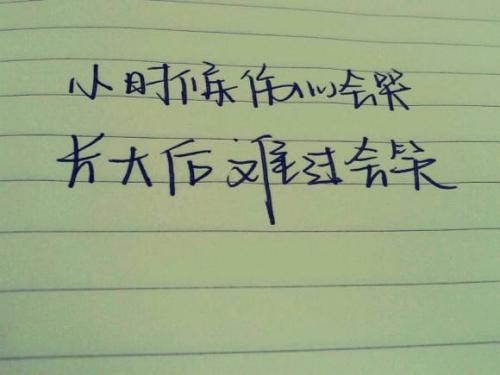 小时候伤心会哭
长大后难过会笑